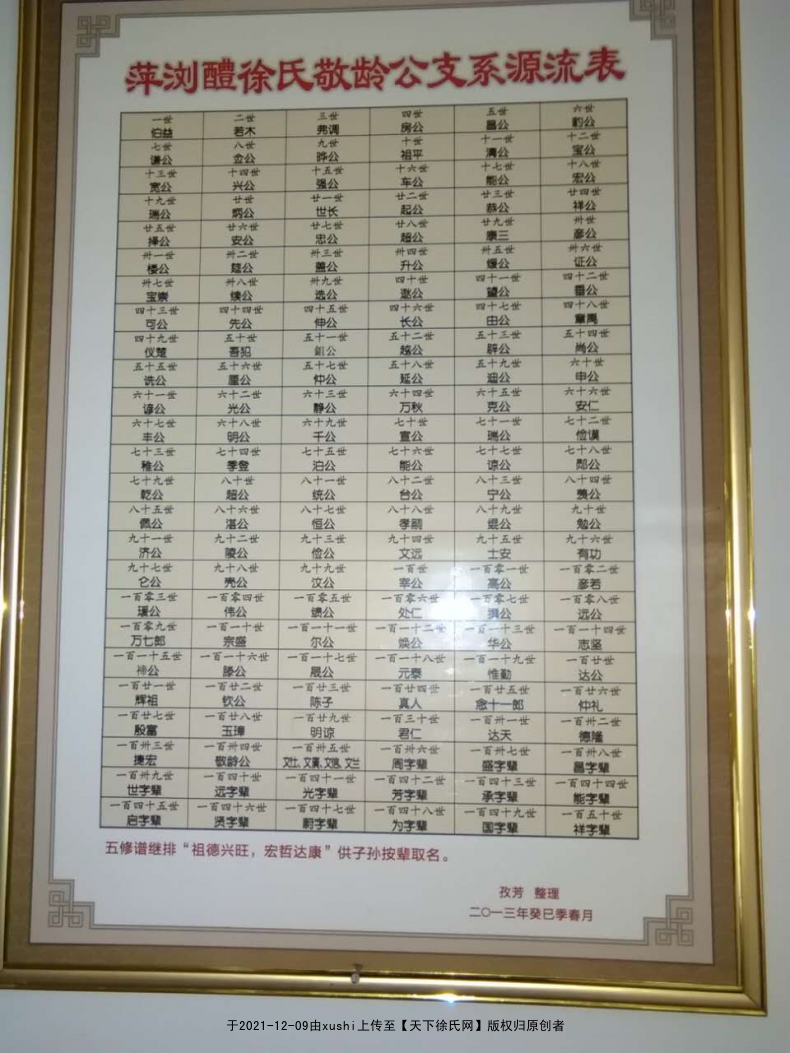 萍浏醴徐氏敬龄公支系源流表
一世 二世 三世 四世 五世 六世
伯益 若木 弗调 房公 昌公 豹公
七世 八世 九世 十世 十一世 十二世
谦公 金公 晔公 祖平 清公 宝公
十三世 十四世 十五世 十六世 十七世 十八世
宽公 兴公 强公 车公 能公 宏公
十九世 廿世 廿一世 廿二世 廿三世 廿四世
瑞公 炳公 世长 起公 恭公 祥公
廿五世 廿六世 廿七世 廿八世 廿九世 卅世
择公 安公 忠公 超公 康三 彦公
卅一世 卅二世 卅三世 卅四世 卅五世 卅六世
楼公 筵公 盖公 升公 缓公 证公
卅七世 卅八世 卅九世 四十世 四十一世 四十二世
宝崇 续公 选公 望公 番公
四十三世 四十四世 四十五世 四十六世 四十七世 四十八世
可公 先公 伸公 长公 由公 章禹
四十九世 五十世 五十一世 五十二世 五十三世 五十四世
仪楚 吾犯 越公 辟公 尚公
五十五世 五十六世 五十七世 五十八世 五十九世 六十世
诜公 仲公 延公 申公
六十一世 六十二世 六十三世 六十四世 六十五世 六十六世
谚公 光公 静公 万秋 克公 安仁
六十七世 六十八世 六十九世 七十世 七十一世 七十二世
丰公 明公 千公 宣公 瑞公 俭谟
七十三世 七十四世 七十五世 七十六世 七十七世 七十八世
稚公 季登 泊公 能公 谅公 郧公
七十九世 八十世 八十一世 八十二世 八十三世 八十四世
乾公 超公 统公 台公 宁公 羡公
八十五世 八十六世 八十七世 八十八世 八十九世 九十世
佩公 湛公 恒公 孝嗣 绲公 勉公
九十一世 九十二世 九十三世 九十四世 九十五世 九十六世
济公 陵公 俭公 文远 士安 有功
九十七世 九十八世 九十九世 一百世 一百零一世 一百零二世
仑公 壳公 汶公 宰公 高公 彦若
一百零三世 一百零四世 一百零五世 一百零六世 一百零七世 一百零八世
瑗公 伟公 绩公 处仁 公 远公
一百零九世 一百一十世 一百一十一世 一百一十二世 一百一十三世 一百一十四世
万七郎 宗盛 尔公 焕公 华公 志坚
一百一十五世 一百一十六世 一百一十七世 一百一十八世 一百一十九世 一百廿世
禘公 滕公 晟公 元泰 惟勤 达公
一百廿一世 一百廿二世 一百廿三世 一百廿四世 一百廿五世 一百廿六世
辉祖 钦公 陈子 真人 念十一郎 仲礼
一百廿七世 一百廿八世 一百廿九世 一百三十世 一百卅一世 一百卅二世
殷富 玉璋 明谅 君仁 达天 德隆
一百卅三世 一百卅四世 一百卅五世 一百卅六世 一百卅七世 一百卅八世
捷宏 敬龄公 周字辈 盛字辈 昌字辈
一百卅九世 一百四十世 一百四十一世 一百四十二世 一百四十三世 一百四十四世
世字辈 远字辈 光字辈 芳字辈 承字辈 能字辈
一百四十五世 一百四十六世 一百四十七世 一百四十八世 一百四十九世 一百五十世
启字辈 贤字辈 蔚字辈 为字辈 国字辈 祥字辈
五修谱继排“祖德兴旺，宏哲达康”供子孙按辈取名。
孜芳 整理
二〇一三年癸巳季春月
于2021-12-09由xushi上传至【天下徐氏网】版权归原创者